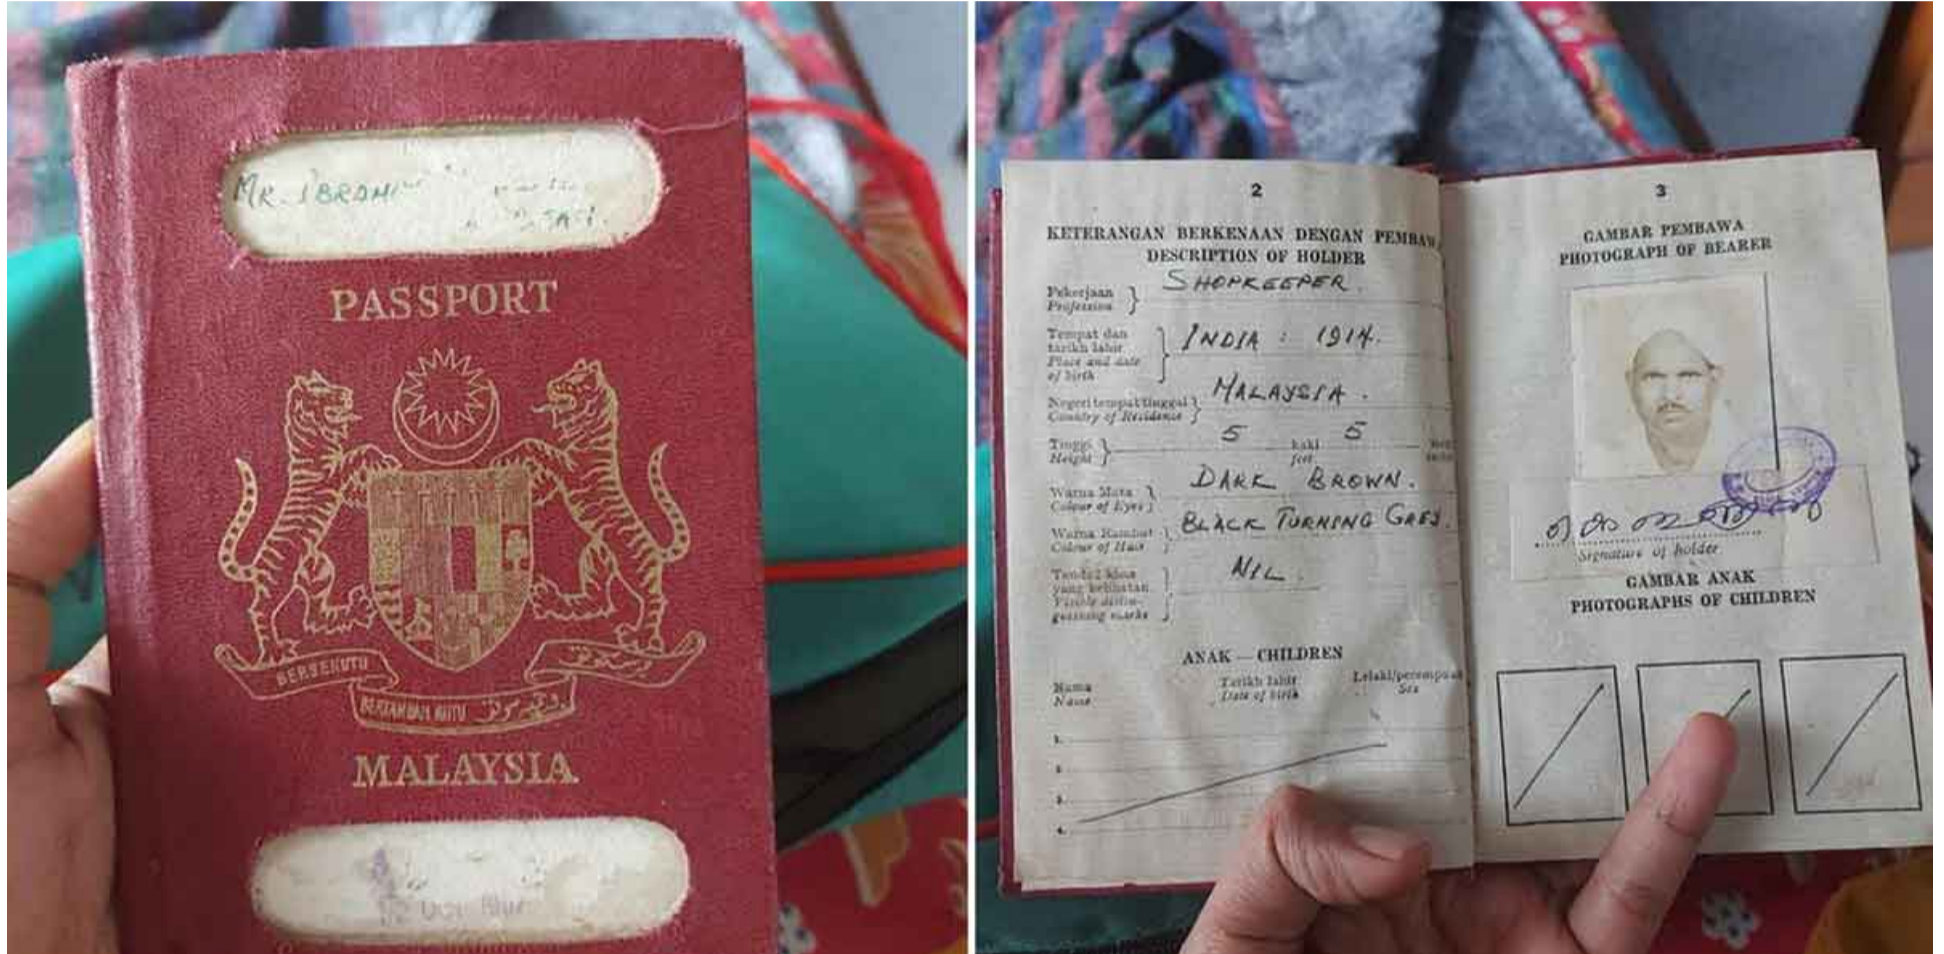 MR. IBRAHI
PASSPORT
BERSEKUTU
BERTAMBAH MUTU
MALAYSIA
2
KETERANGAN BERKENAAN DENGAN PEMBAWA
DESCRIPTION OF HOLDER
Pekerjaan
Profession
SHOPKEEPER.
Tempat dan
tarikh lahir
Place and date
of birth
INDIA : 1914.
Negeri tempat tinggal
Country of Residence
MALAYSIA.
Tinggi
Height
5 kaki 5
feet
Warna Mata
Colour of Eyes
DARK BROWN.
Warna Rambut
Colour of Hair
BLACK TURNING GREY.
Tanda2 khas
yang kelihatan
Visible distin-
guishing marks
NIL.
ANAK — CHILDREN
Nama
Name
Tarikh lahir
Date of birth
Lelaki/perempuan
Sex
1.
2.
3.
4.
3
GAMBAR PEMBAWA
PHOTOGRAPH OF BEARER
Signature of holder
GAMBAR ANAK
PHOTOGRAPHS OF CHILDREN